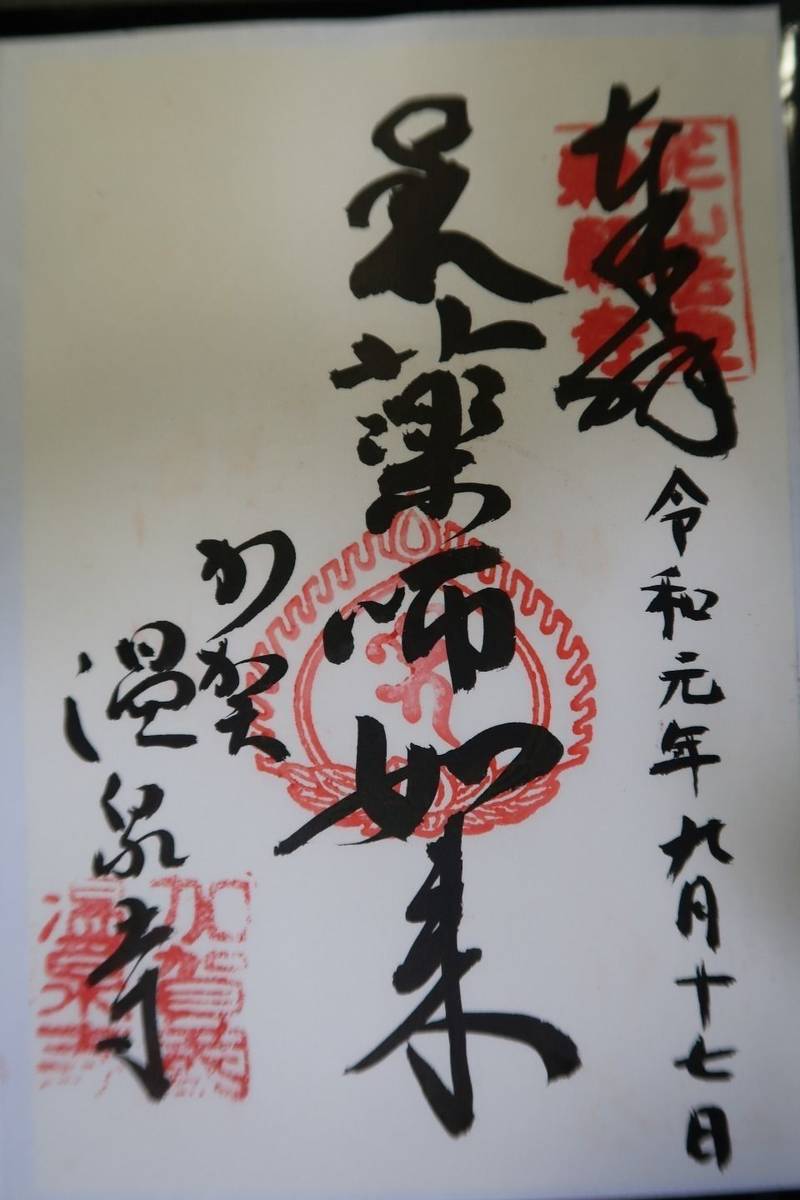 奉拝
令和元年九月十七日
呆薬師如来
加賀
温泉寺